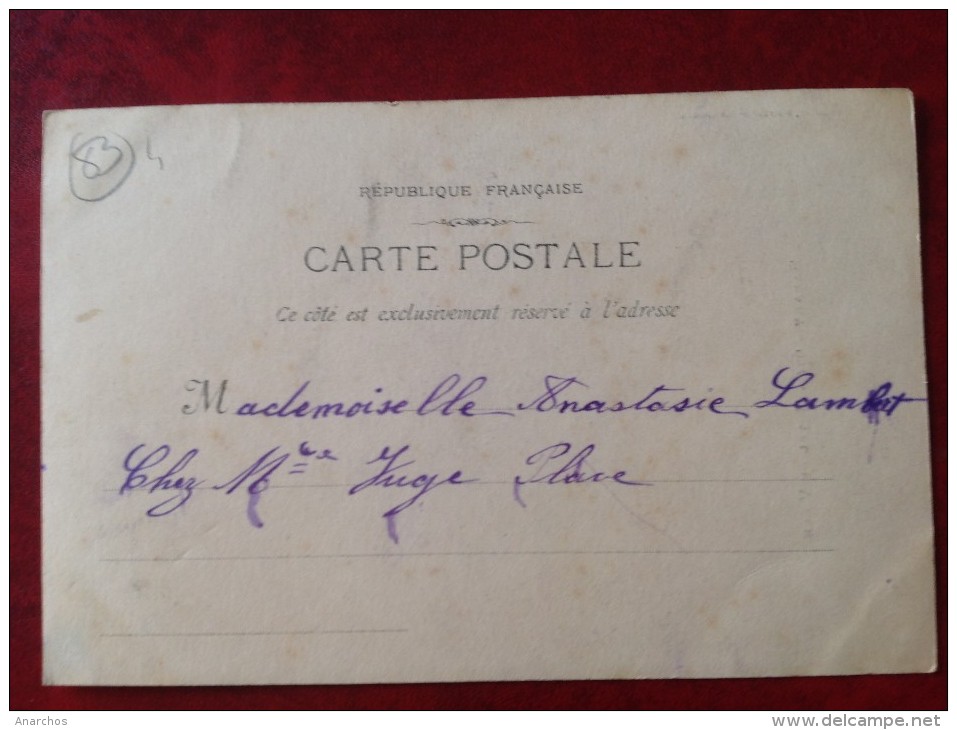 83 4
RÉPUBLIQUE FRANÇAISE
CARTE POSTALE
Ce côté est exclusivement réservé à l'adresse
Mademoiselle Anastasie Lambert
Chez M Juge Place
Anarchos
www.delcampe.net